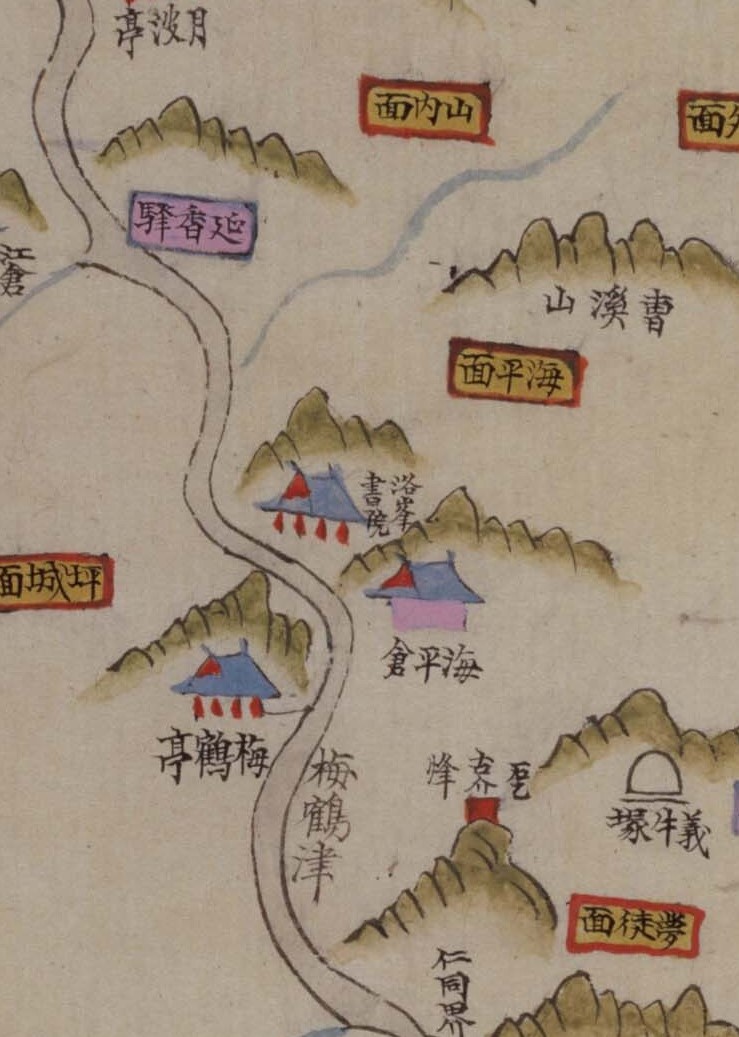 月波亭
山內面
外面
延香驛
江倉
曺溪山
海平面
洛峯
書院
坪城面
海平倉
梅鶴亭
梅鶴津
乭古介烽
義牛塚
夢徒面
仁同界